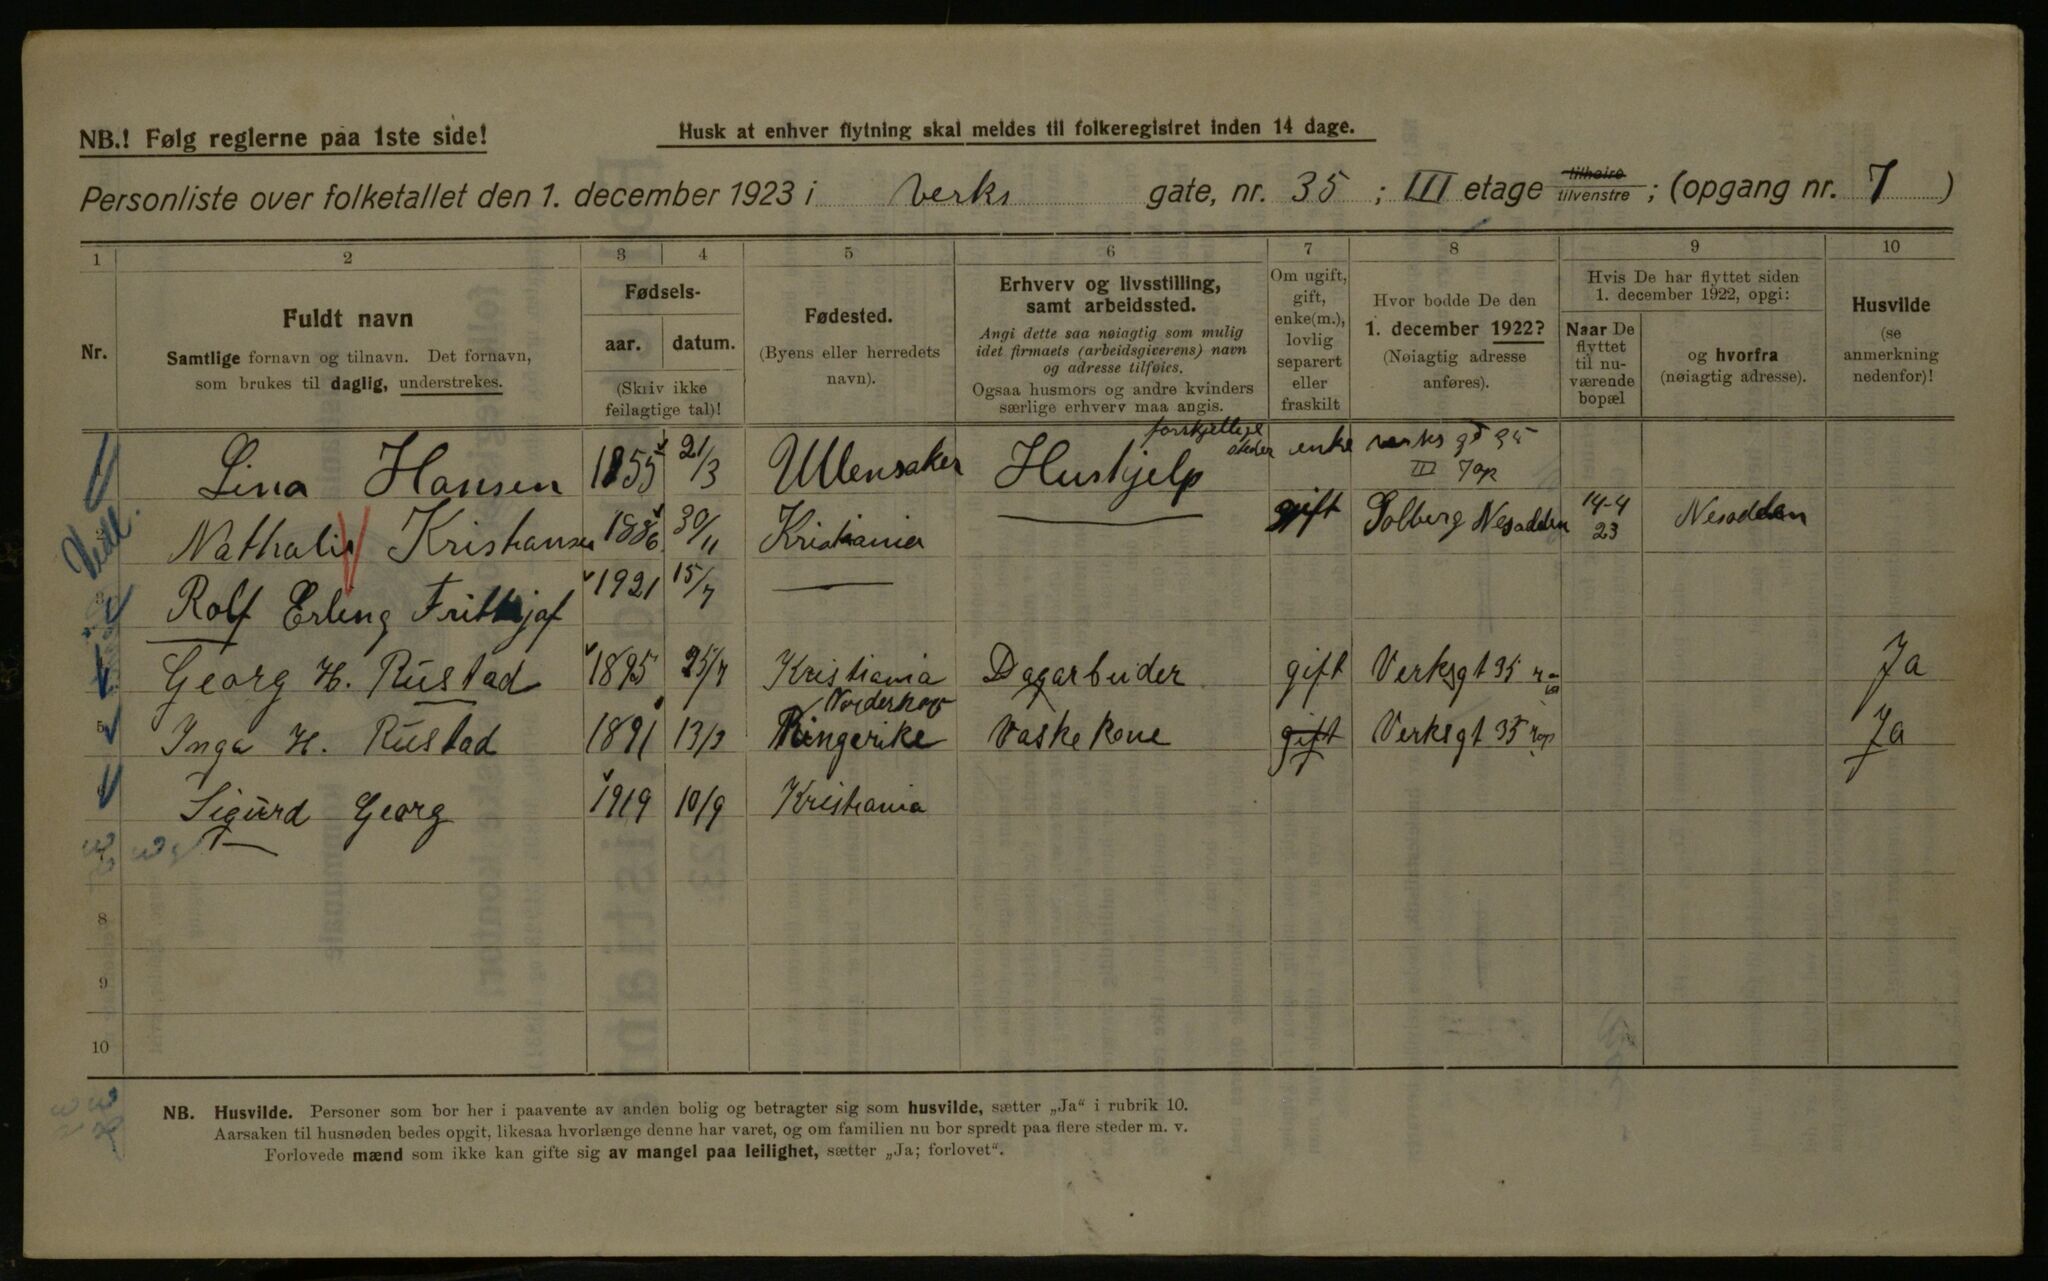 NB.! Følg reglerne paa 1ste side!
Husk at enhver flytning skal meldes til folkeregistret inden 14 dage.
Personliste over folketallet den 1. december 1923 i Verks gate, nr. 35 ; III etage tilhøire tilvenstre ; (opgang nr. 7 )
1 2 3 4 5 6 7 8 9 10
Nr.
Fuldt navn
Samtlige fornavn og tilnavn. Det fornavn,
som brukes til daglig, understrekes.
Fødsels-
aar. datum.
(Skriv ikke
feilagtige tal)!
Fødested.
(Byens eller herredets
navn).
Erhverv og livsstilling,
samt arbeidssted.
Angi dette saa nøiagtig som mulig
idet firmaets (arbeidsgiverens) navn
og adresse tilføies.
Ogsaa husmors og andre kvinders
særlige erhverv maa angis.
Om ugift,
gift,
enke(m.),
lovlig
separert
eller
fraskilt
Hvor bodde De den
1. december 1922?
(Nøiagtig adresse
anføres).
Hvis De har flyttet siden
1. december 1922, opgi:
Naar De
flyttet
til nu-
værende
bopæl
og hvorfra
(nøiagtig adresse).
Husvilde
(se
anmerkning
nedenfor)!
Lina Hansen 1855 21/3 Ullensaker Hushjelp forskjellige steder enke verks gd 35
III 7 op
Nathalie Kristiansen 1886 30/11 Kristiania gift Solberg Nesodden 14-4 23 Nesodden
Rolf Erling Frithjof 1921 15/7
Georg H. Rustad 1895 25/7 Kristiania Dagarbeider gift Verksgt 35 Ja
Inga H. Rustad 1891 13/3 Norderhov Ringerike Vaskekone gift Verksgt 35 7 op Ja
Sigurd Georg 1919 10/9 Kristiania
8
9
10
NB. Husvilde. Personer som bor her i paavente av anden bolig og betragter sig som husvilde, sætter „Ja“ i rubrik 10.
Aarsaken til husnøden bedes opgit, likesaa hvorlænge denne har varet, og om familien nu bor spredt paa flere steder m. v.
Forlovede mænd som ikke kan gifte sig av mangel paa leilighet, sætter „Ja; forlovet“.